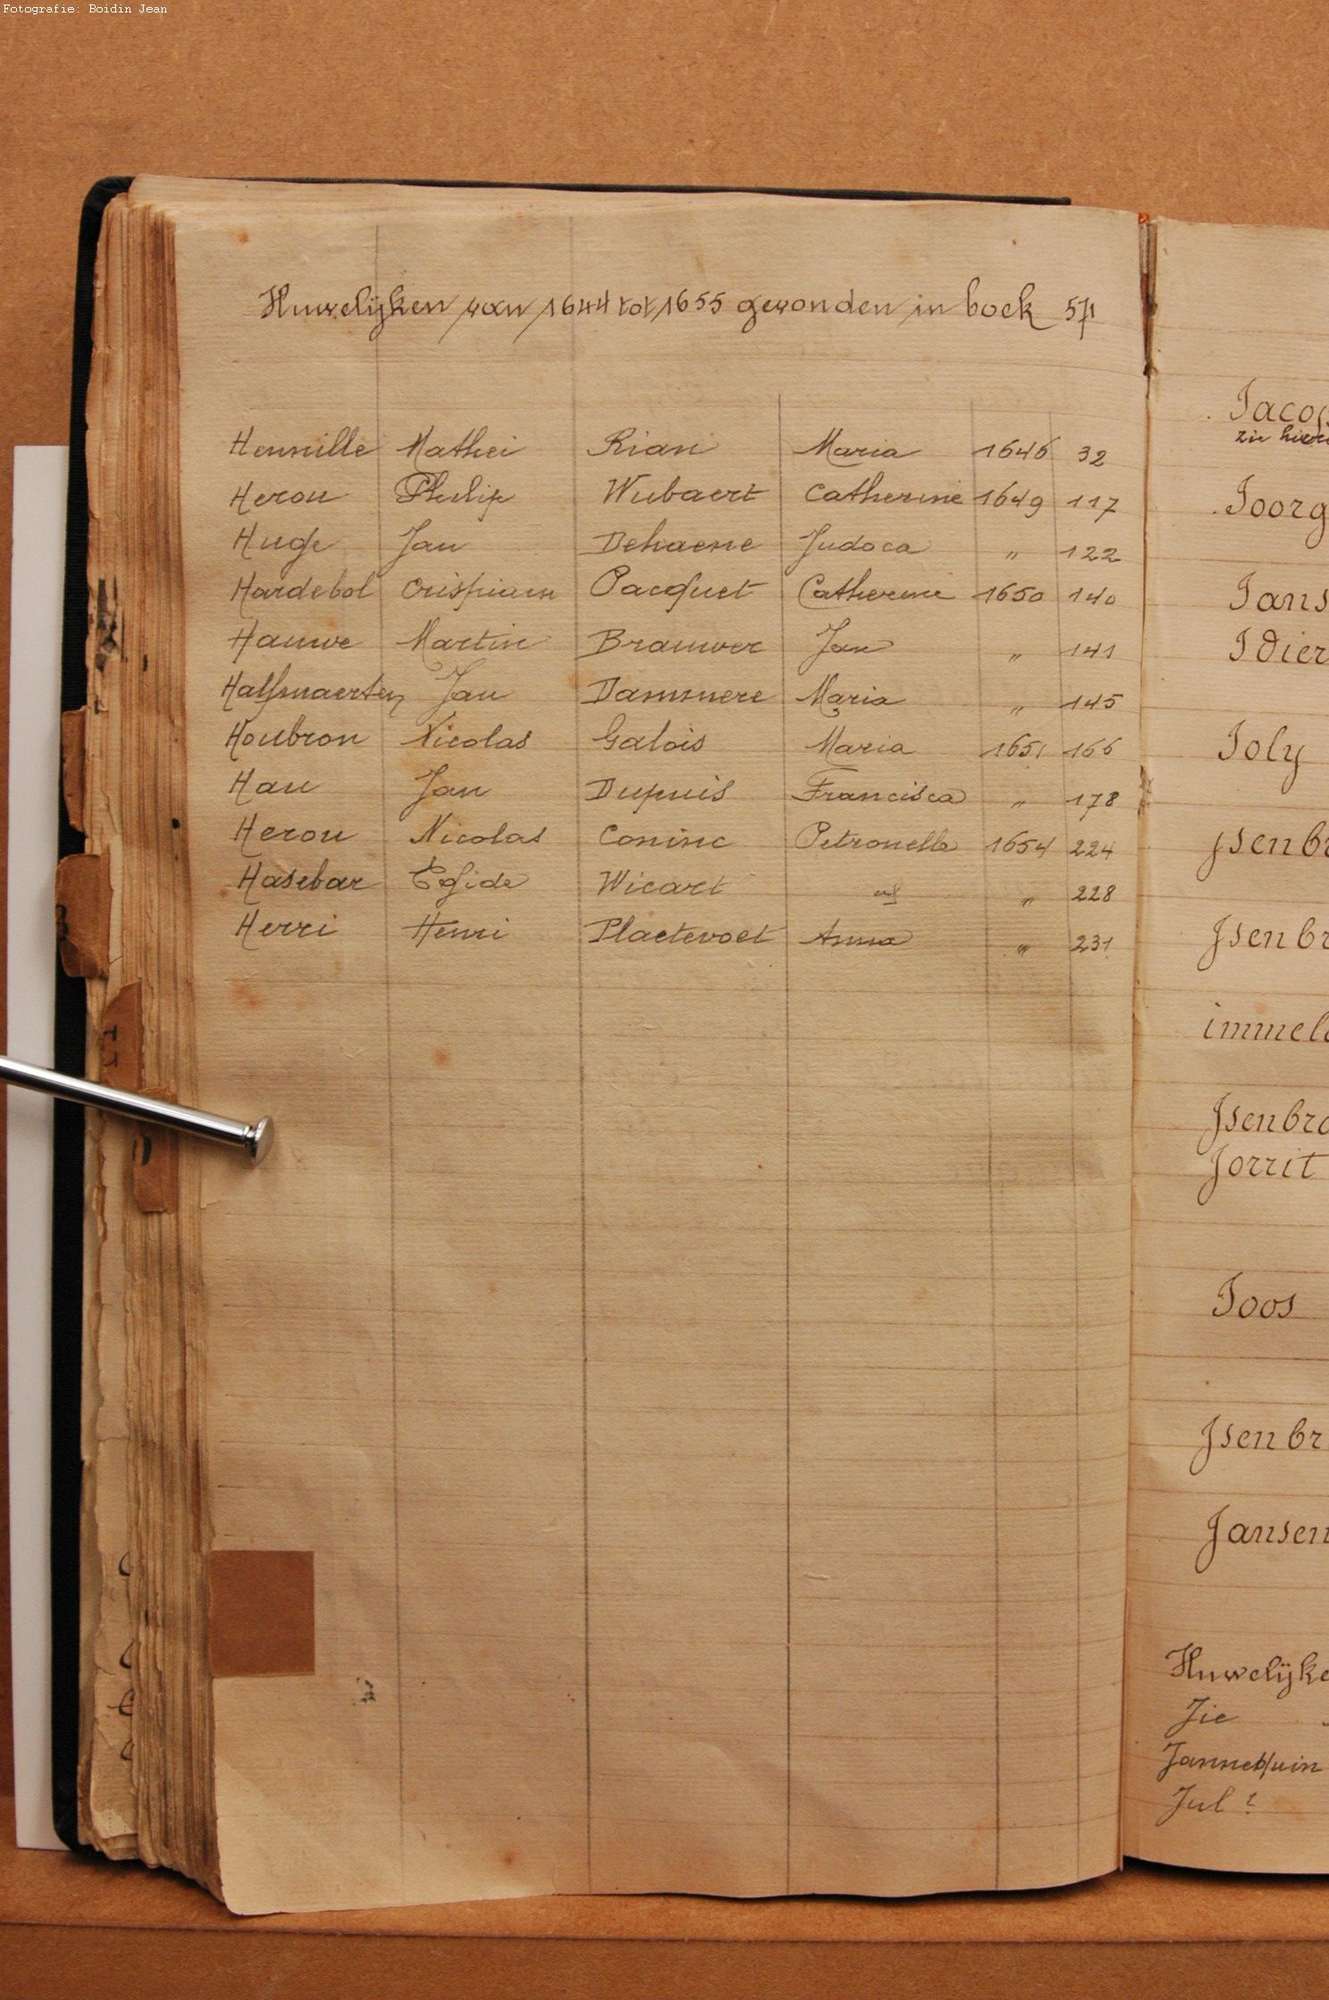 Fotografie: Boidin Jean
Huwelijken van 1644 tot 1655 gevonden in boek 571
Hennille Mathei Rian Maria 1646 32
Herou Philip Wubaert Catherine 1649 117
Huge Jan Dehaene Judoca " 122
Hardebol Crispiam Pacquet Catherine 1650 140
Hauwe Martin Brauwer Jan " 141
Halfmaerten Jan Dammere Maria " 145
Houbron Nicolas Galois Maria 1651 166
Hau Jan Dupuis Francisca " 178
Herou Nicolas Coninc Petronella 1654 224
Hasebar Egide Wicart " 228
Herri Henri Plaetevoet Anna " 231
Jacoq
zie hier
Joorg
Jans
Idier
Joly
Jsenbr
Jsenbr
immelo
Jsenbra
Jorrit
Joos
Jsenbr
Jansen
Huwelijke
Jie
Jannequin
Jul ?